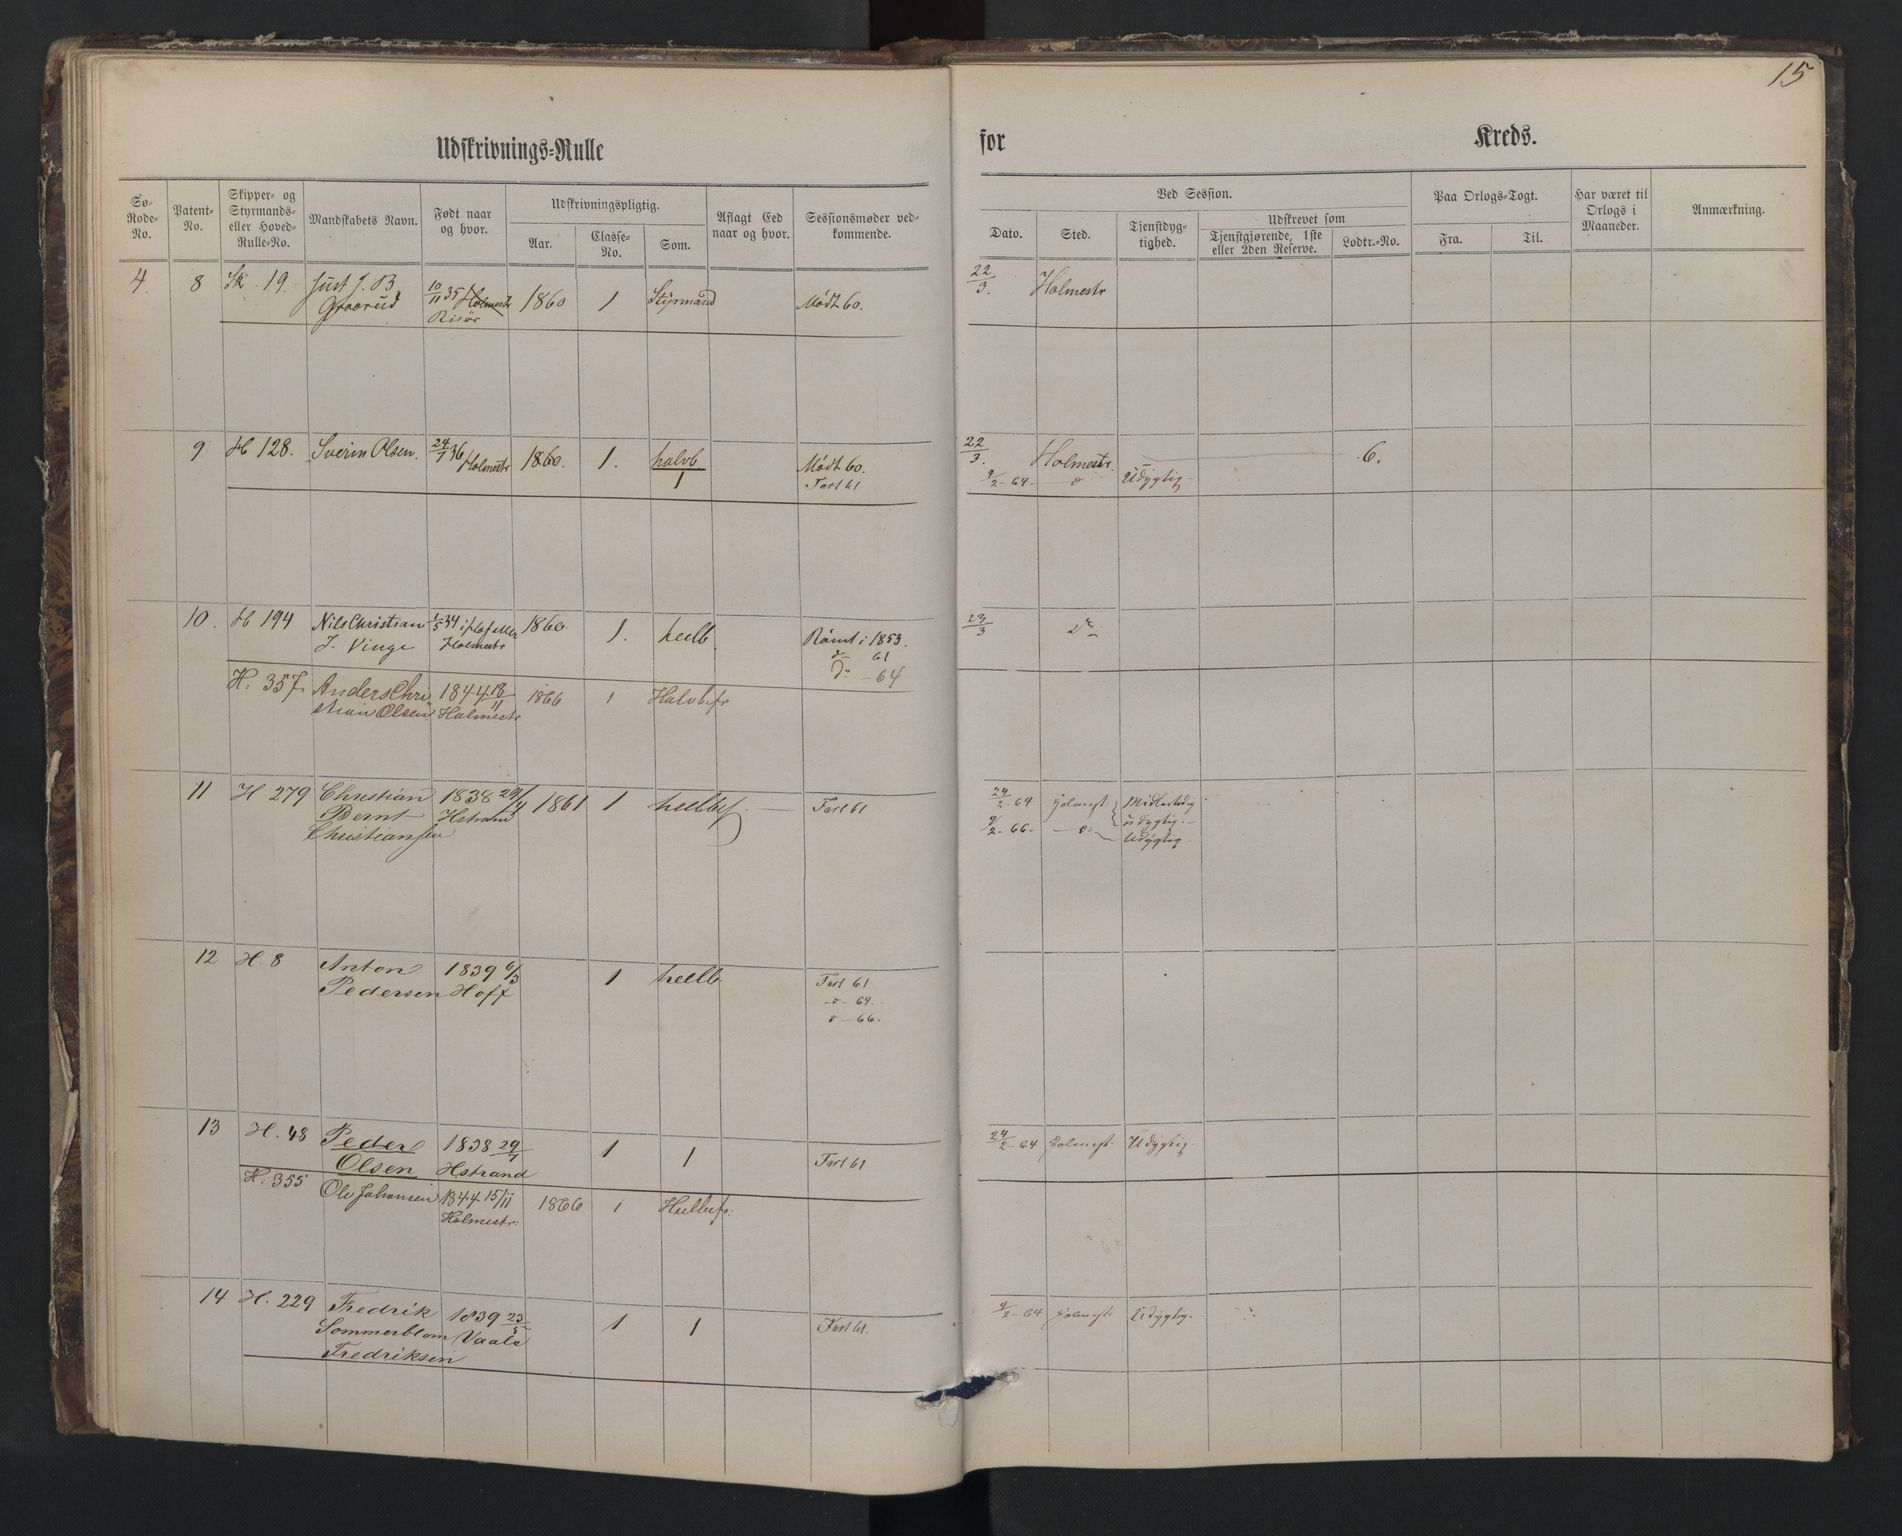 15
Udskrivnings-Rulle
for Kreds.
Sø-Rode-No.
Patent-No.
Skipper- og Styrmands- eller Hoved-Rulle-No.
Mandskabets Navn.
Født naar og hvor.
Udskrivningspligtig.
Aar.
Classe-No.
Som.
Aflagt Eed naar og hvor.
Sessionsmøder vedkommende.
Ved Session.
Dato.
Sted.
Tjenstdygtighed.
Udskrevet som
Tjenstgjørende, 1ste eller 2den Reserve.
Lodtr.-No.
Paa Orlogs-Togt.
Fra.
Til.
Har været til Orlogs i Maaneder.
Anmærkning.
4 8 Sk. 19. Just J. B 10/11 35 Holmestr 1860 1 Styrmand Mødt 60. 22/3. Holmestr
Graarud Risör
9 H 128. Sverin Olsen. 24/7 36 Holmestr 1860. 1. halvb Mødt 60. 22/3. Holmestr. 6.
1 Fart 61 9/2-64- -o- Udygtig-
10. H 194 Nils Christian 1/5 34 1860 1. heelb. Rømt i 1853. 23/3 do
J. Vinge Holmestr do 61
do - 64
H. 357. Anders Chri 1844 18/11 1866 1 Halvbefr
stian Olsen Holmestr
11 H 279 Christian 1838 29/4 1861 1 heelbef. Fart 61 24/2-64 Holmest. Midlertidig
Bernt Hstrand udygtig.-
Christiansen 9/2-66. -o- Udygtig.
12 H. 8 Anton 1839 6/3 1 heelb Fart 61
Pedersen Hoff -o- 64.
o - 66.
13 H. 48 Peder 1838 29/7 1 1 Fart 61 24/2-64 Holmest. Udygtig.
Olsen Hstrand
H. 355 Ole Johansen 1844 15/11 1866 1 Heelbefr.
Holmestr.
14 H. 229 Fredrik 1839 23/5 1 1 Fart 61. 9/2-64 Holmest. Udygtig.
Sommerblom Vaale
Fredriksen